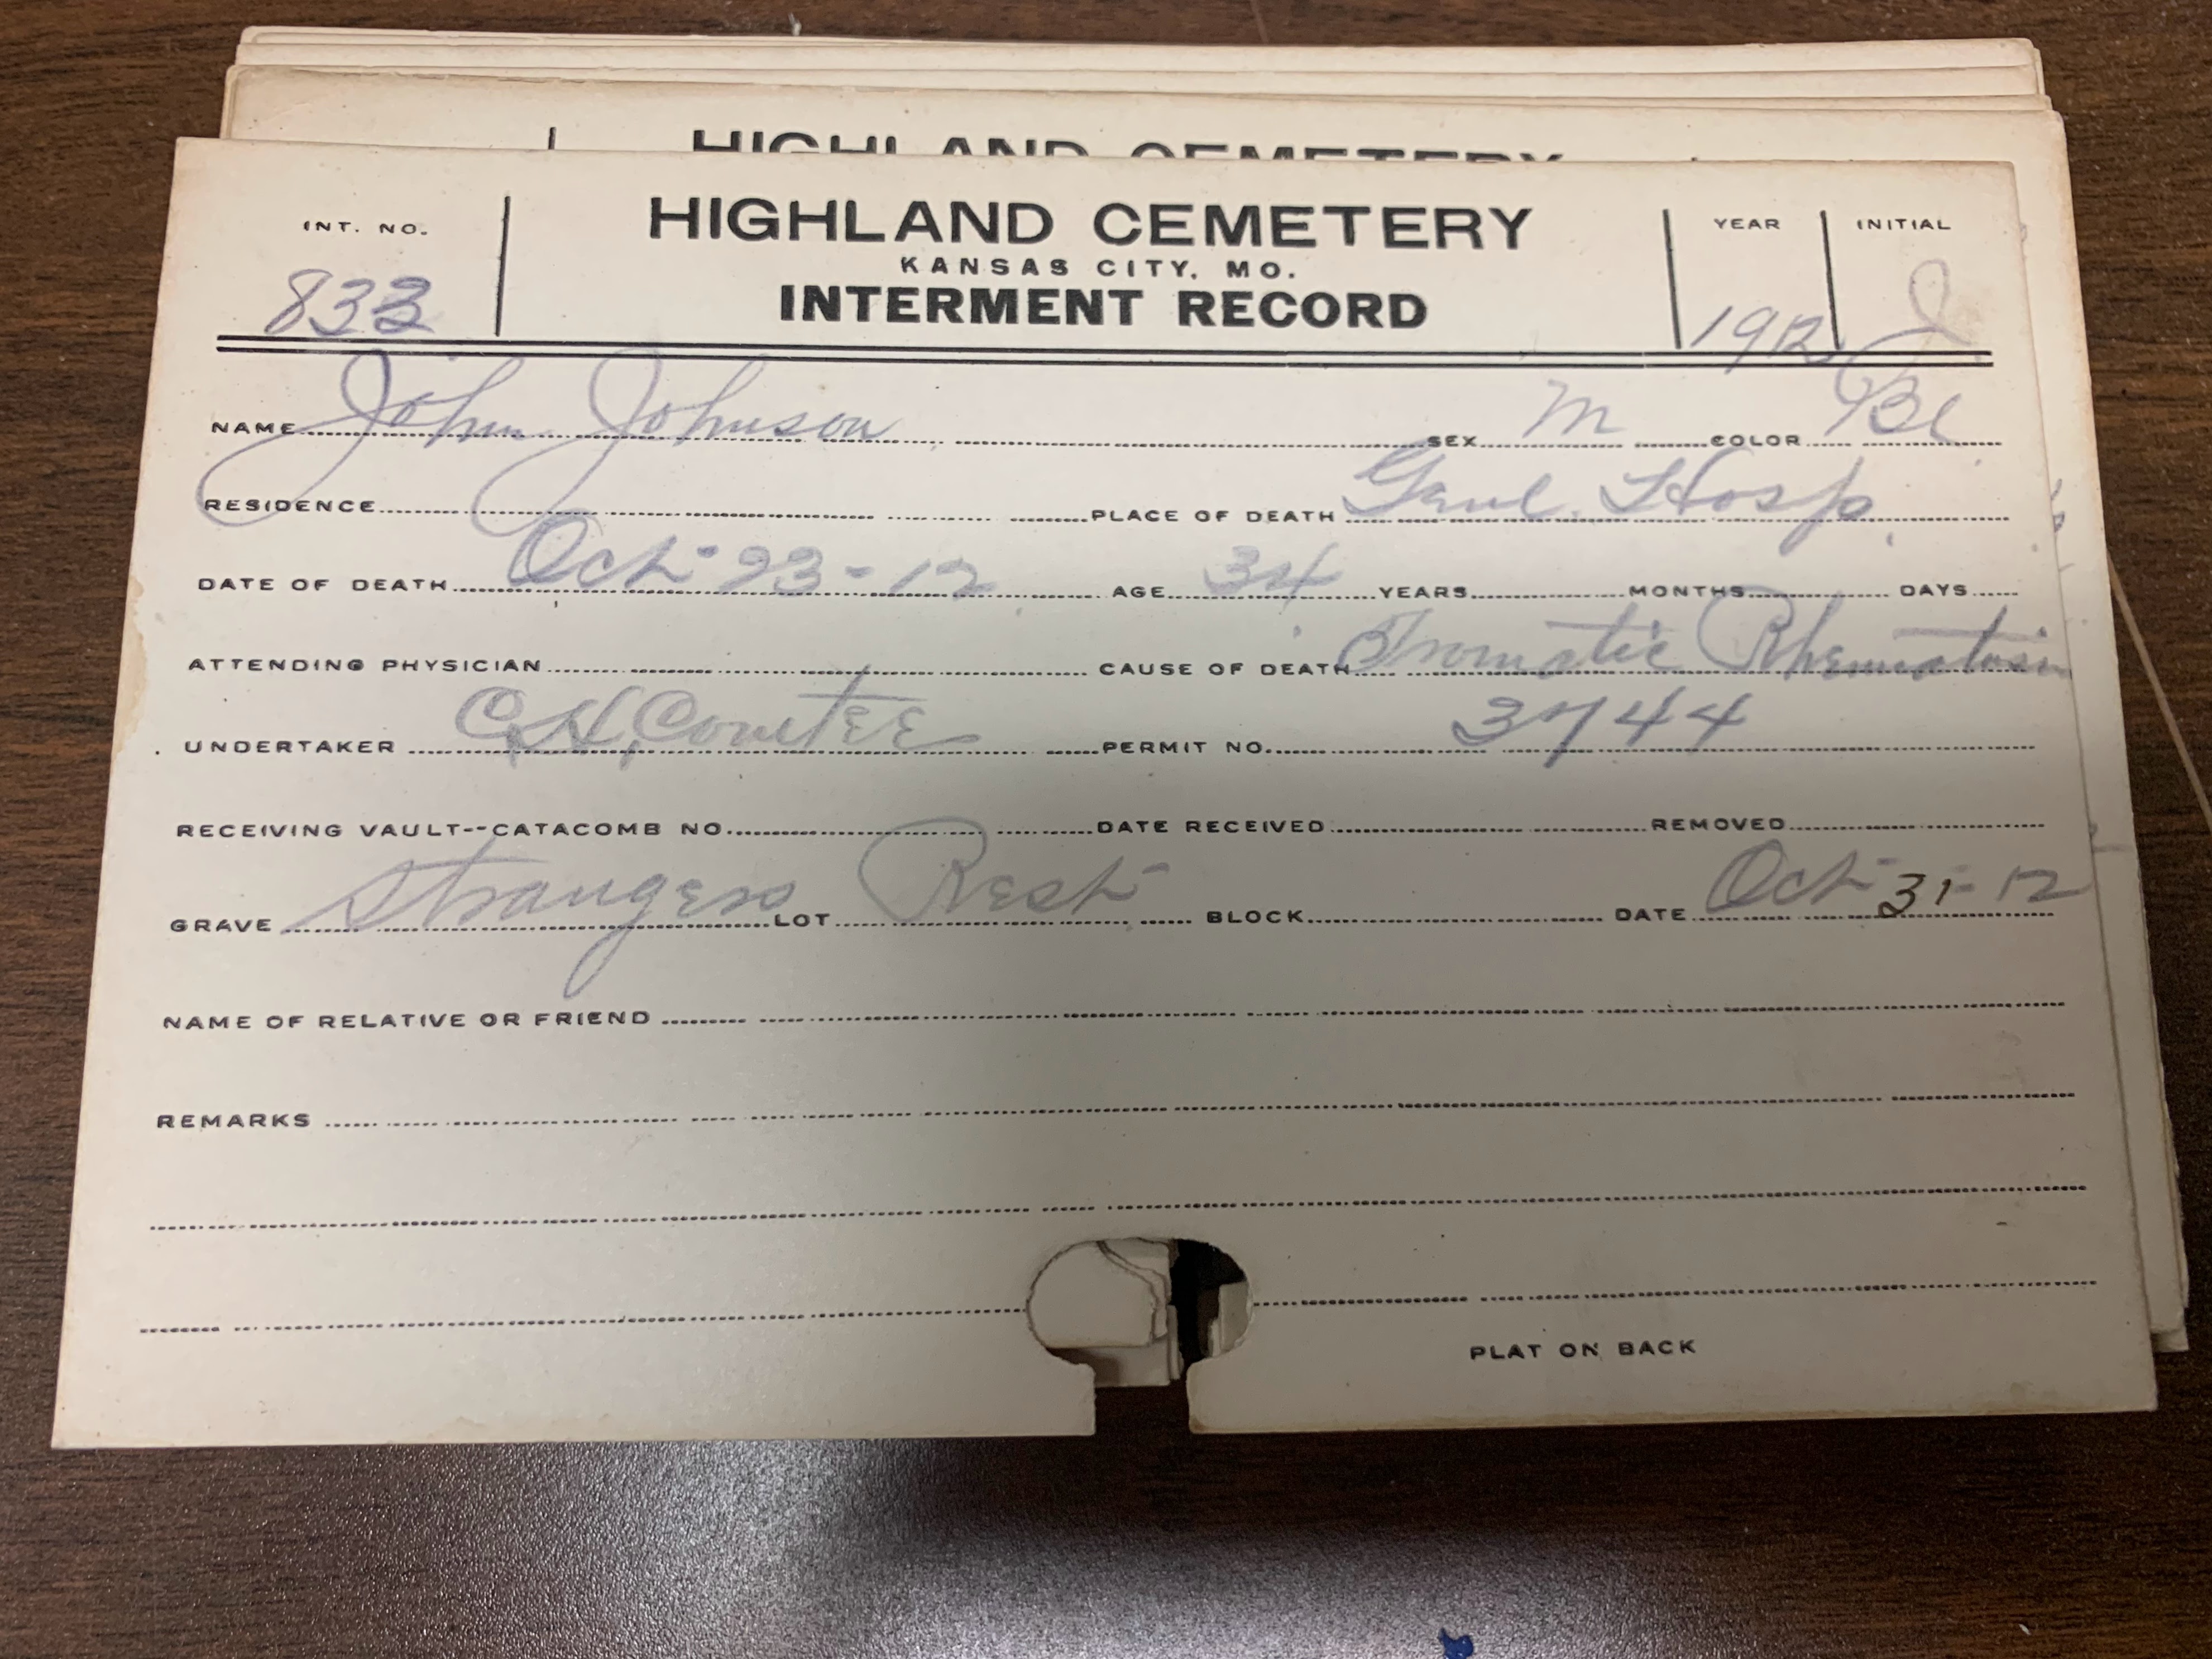 HIGHLAND CEMETERY
INT. NO. HIGHLAND CEMETERY YEAR INITIAL
KANSAS CITY, MO.
833 INTERMENT RECORD 1912 J
NAME John Johnson SEX M COLOR Bl
RESIDENCE PLACE OF DEATH Genl. Hosp.
DATE OF DEATH Oct-23-12 AGE 34 YEARS MONTHS DAYS
ATTENDING PHYSICIAN CAUSE OF DEATH Tromatic Rhematism
UNDERTAKER C.H. Countee PERMIT NO. 3744
RECEIVING VAULT--CATACOMB NO. DATE RECEIVED REMOVED
GRAVE Strangers LOT Rest BLOCK DATE Oct-31-12
NAME OF RELATIVE OR FRIEND
REMARKS
PLAT ON BACK